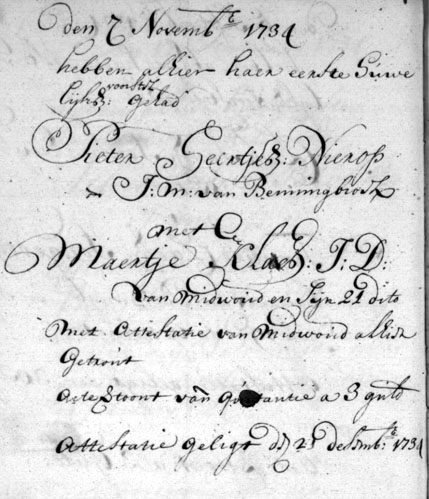 den 7 Novembr 1734
hebben alhier haer eerste Huwe
lijks: voorstel gehad
Pieter Geertjesz: Nierop
J: M: van Benningbroek
met
Maertje Klaes: J: D:
van midwoud en Sijn 21 dito
met Attestatie van midwoud alhier
Getrout
Acte getoont van quitantie a 3 guld
Attestatie geligt d: 2 desemb: 1734